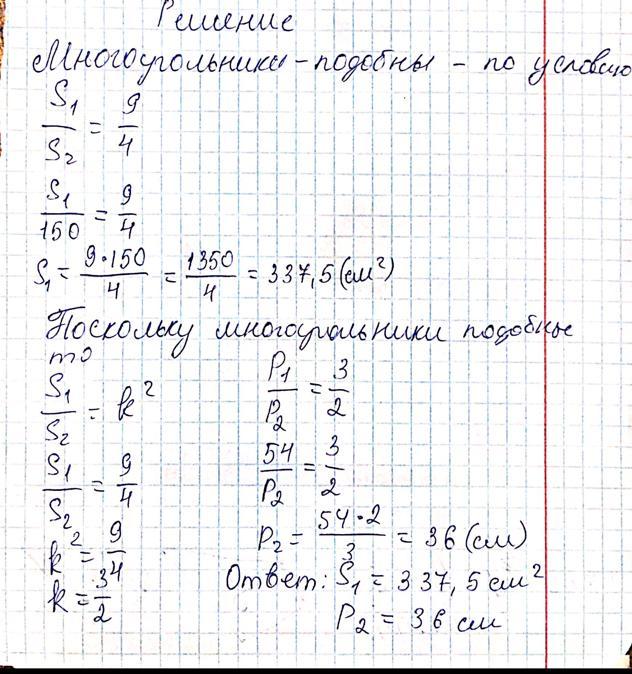 Решение
Многоугольники - подобны - по условию
S₁/S₂ = 9/4
S₁/150 = 9/4
S₁ = 9·150/4 = 1350/4 = 337,5 (см²)
Поскольку многоугольники подобные
то
S₁/S₂ = k²
S₁/S₂ = 9/4
k² = 9/4
k = 3/2
P₁/P₂ = 3/2
54/P₂ = 3/2
P₂ = 54·2/3 = 36 (см)
Ответ: S₁ = 337,5 см²
P₂ = 36 см